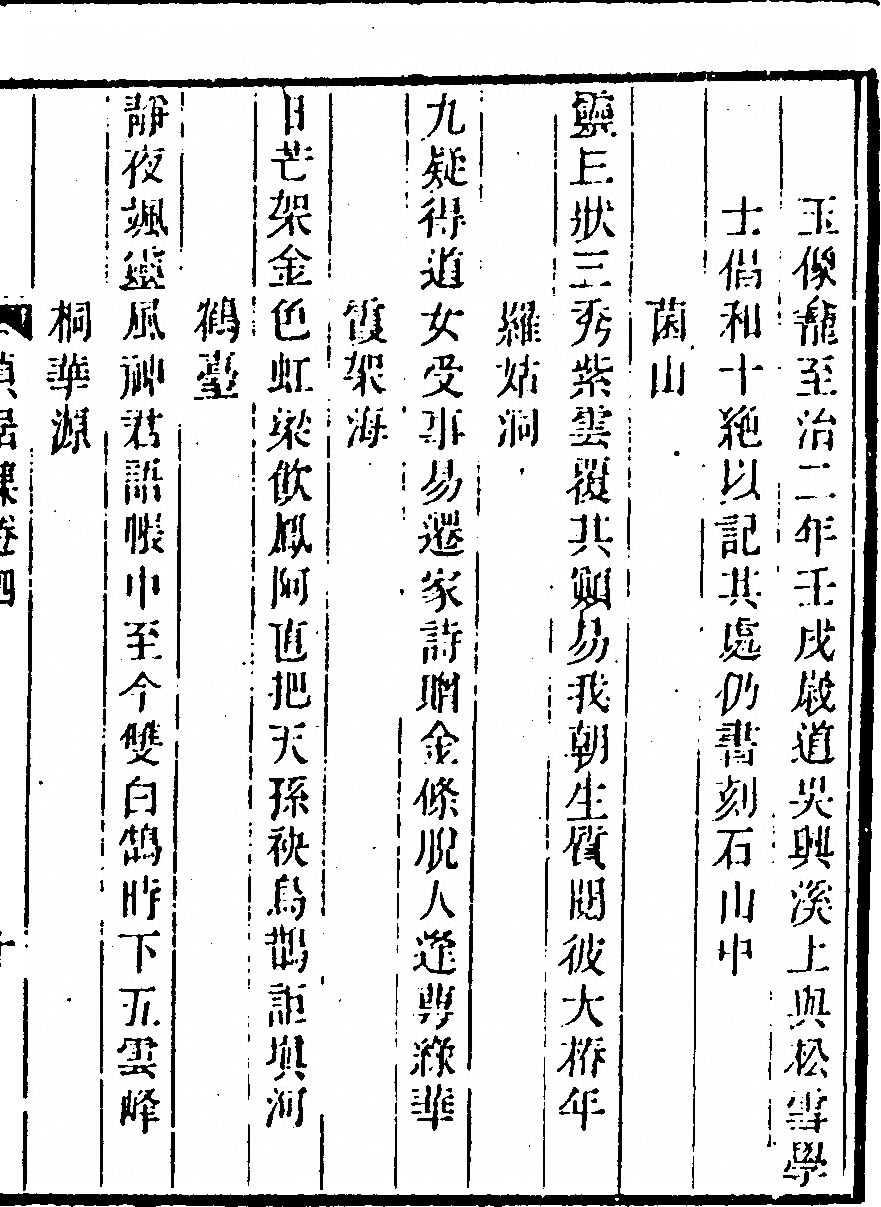 玉像龕至治二年壬戌嚴道吳興溪上與松雪學
士倡和十絶以記其處仍書刻石山中
菌山
靈巨狀三秀紫雲覆其顛易我朝生質閱彼大椿年
羅姑洞
九疑得道女受事易遷家詩贈金條脫人逢萼綠華
霞架海
日芒架金色虹梁飲鳳阿直把天孫袂烏鵲詎塡河
鶴臺
靜夜颯靈風神君語帳中至今雙白鵠時下五雲峰
桐華源
貞居集卷四
十